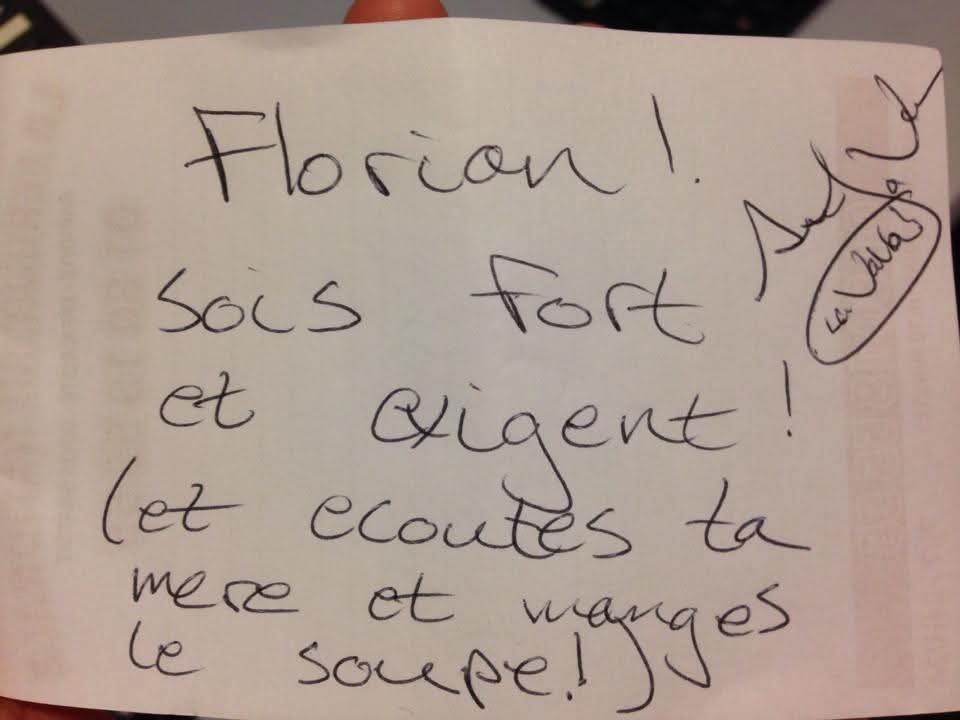 Florian!
sois fort
et exigent!
(et ecoutes ta
mere et manges
le soupe!)